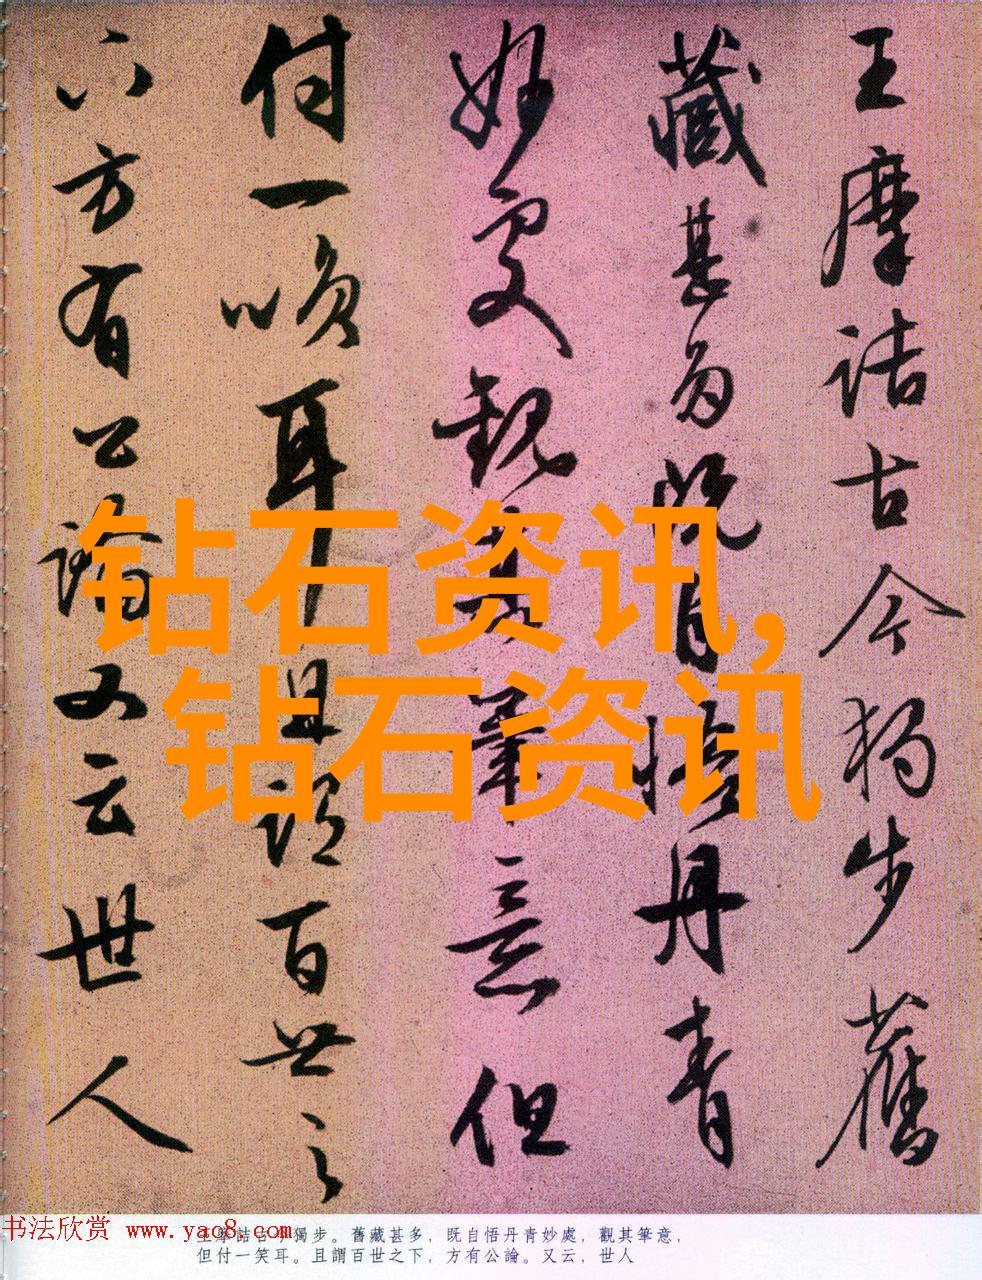 王摩詰古今獨步舊
藏甚多既自悟丹青
妙處觀其筆意但
付一唉耳且謂百世之
下方有公論又云世人
钻石资讯,
钻石资讯
书法欣赏 www.yac8.com
王摩詰古今獨步。舊藏甚多，既自悟丹青妙處，觀其筆意，
但付一笑耳。且謂百世之下，方有公論。又云，世人